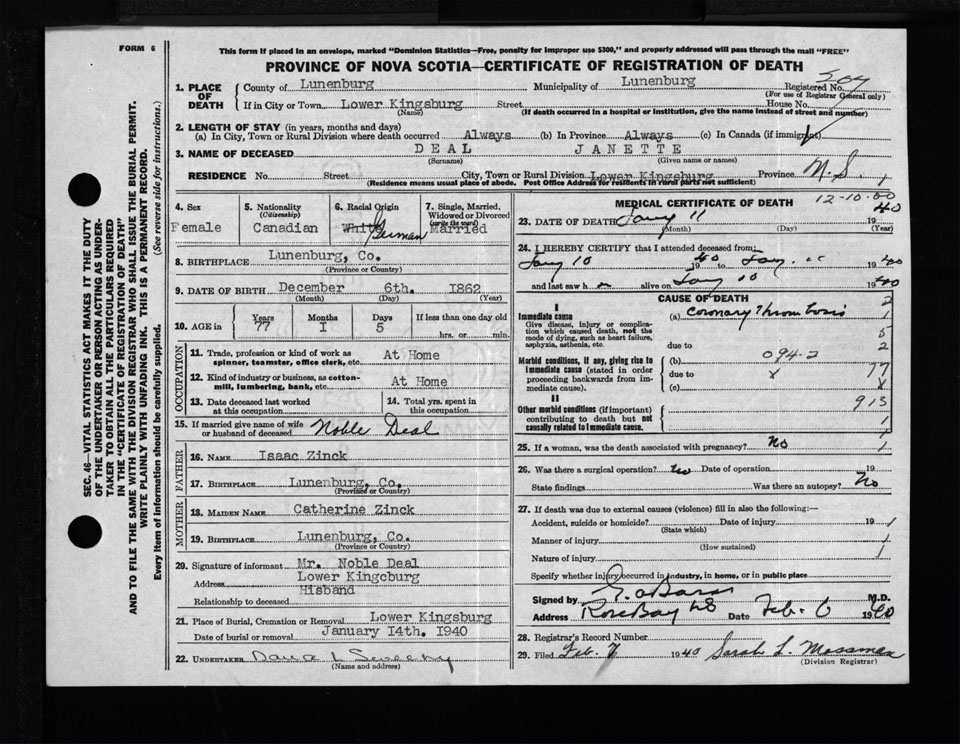 FORM 6
This form if placed in an envelope, marked "Dominion Statistics—Free, penalty for improper use $300," and properly addressed will pass through the mail "FREE"
PROVINCE OF NOVA SCOTIA—CERTIFICATE OF REGISTRATION OF DEATH
SEC. 46—VITAL STATISTICS ACT MAKES IT THE DUTY
OF THE UNDERTAKER OR PERSON ACTING AS UNDER-
TAKER TO OBTAIN ALL THE PARTICULARS REQUIRED
IN THE "CERTIFICATE OF REGISTRATION OF DEATH"
AND TO FILE THE SAME WITH THE DIVISION REGISTRAR WHO SHALL ISSUE THE BURIAL PERMIT.
WRITE PLAINLY WITH UNFADING INK. THIS IS A PERMANENT RECORD.
Every item of information should be carefully supplied. (See reverse side for instructions.)
1. PLACE OF DEATH
County of Lunenburg Municipality of Lunenburg Registered No.
(For use of Registrar General only)
If in City or Town Lower Kingsburg Street House No.
(Name) (If death occurred in a hospital or institution, give the name instead of street and number)
2. LENGTH OF STAY (in years, months and days)
(a) In City, Town or Rural Division where death occurred Always (b) In Province Always (c) In Canada (if immigrant)
3. NAME OF DECEASED DEAL JANETTE
(Surname) (Given name or names)
RESIDENCE No. Street City, Town or Rural Division Lower Kingsburg Province N.S.
(Residence means usual place of abode. Post Office Address for residents in rural parts not sufficient)
4. Sex
Female
5. Nationality
(Citizenship)
Canadian
6. Racial Origin
White German
7. Single, Married,
Widowed or Divorced
(write the word)
Married
8. BIRTHPLACE Lunenburg, Co.
(Province or Country)
9. DATE OF BIRTH December 6th. 1862
(Month) (Day) (Year)
10. AGE in Years Months Days If less than one day old
77 I 5 hrs. or min.
OCCUPATION
11. Trade, profession or kind of work as
spinner, teamster, office clerk, etc. At Home
12. Kind of industry or business, as cotton-
mill, lumbering, bank, etc. At Home
13. Date deceased last worked
at this occupation
14. Total yrs. spent in
this occupation
15. If married give name of wife
or husband of deceased Noble Deal
FATHER
16. NAME Isaac Zinck
17. BIRTHPLACE Lunenburg, Co.
(Province or Country)
MOTHER
18. MAIDEN NAME Catherine Zinck
19. BIRTHPLACE Lunenburg, Co.
(Province or Country)
20. Signature of informant Mr. Noble Deal
Address Lower Kingcburg
Relationship to deceased Hisband
21. Place of Burial, Cremation or Removal Lower Kingsburg
Date of burial or removal January 14th. 1940
22. UNDERTAKER
(Name and address)
MEDICAL CERTIFICATE OF DEATH
12-10.00
23. DATE OF DEATH Jany 11 1940
(Month) (Day) (Year)
24. I HEREBY CERTIFY that I attended deceased from:
Jany 10 1940 to Jany. 1940
and last saw h alive on Jany 10 1940
CAUSE OF DEATH
I
Immediate cause
Give disease, injury or complica-
tion which caused death, not the
mode of dying, such as heart failure,
asphyxia, asthenia, etc.
(a) Coronary thrombosis
due to
Morbid conditions, if any, giving rise to
immediate cause (stated in order
proceeding backwards from im-
mediate cause).
(b) 094.2
due to
(c)
2
5
2
77
X
913
1
II
Other morbid conditions (if important)
contributing to death but not
causally related to immediate cause.
25. If a woman, was the death associated with pregnancy? No
26. Was there a surgical operation? Date of operation 19
State findings Was there an autopsy? No
27. If death was due to external causes (violence) fill in also the following:—
Accident, suicide or homicide? Date of injury 19
(State which)
Manner of injury
(How sustained)
Nature of injury
Specify whether injury occurred in industry, in home, or in public place
Signed by M.D.
Address Rose Bay NS Date Feb. 6 1940
28. Registrar's Record Number
29. Filed Feb. 7 1940 Sarah L. Mossman
(Division Registrar)